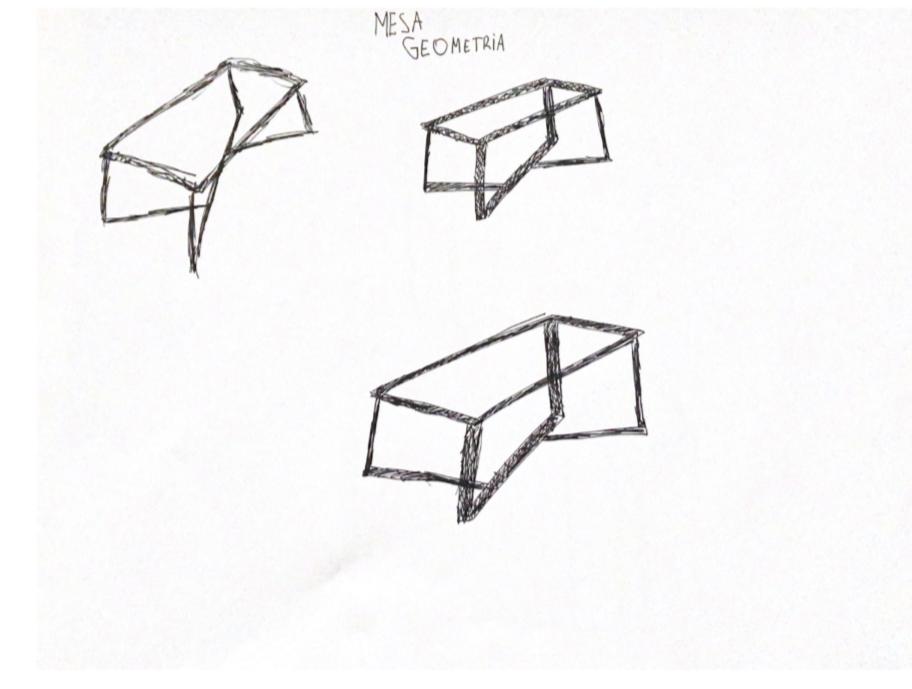 MESA
GEOMETRiA